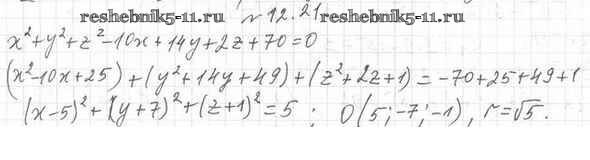 reshebnik5-11.ru № 12.21 reshebnik5-11.ru
x²+y²+z²-10x+14y+2z+70=0
(x²-10x+25)+(y²+14y+49)+(z²+2z+1)=-70+25+49+1
(x-5)²+(y+7)²+(z+1)²=5; O(5;-7;-1), r=√5.